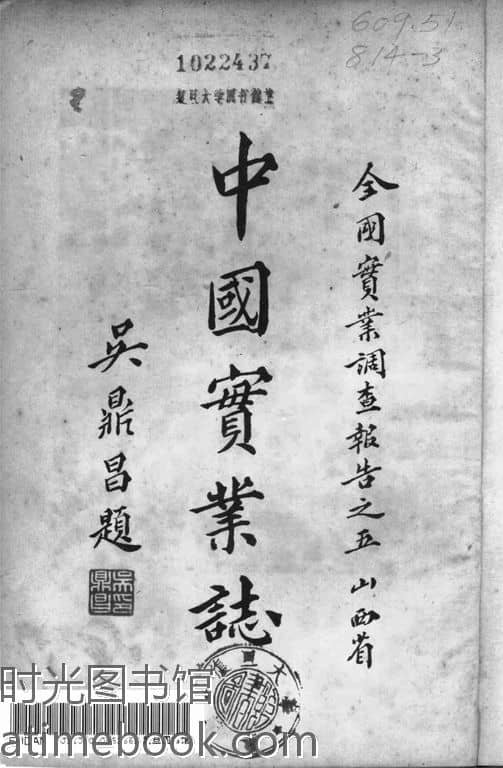 609.51
814-3
1022437
復旦大学图书館整
全國實業調查報告之五 山西省
中國實業誌
吳鼎昌題
时光图书馆
atimebook.com